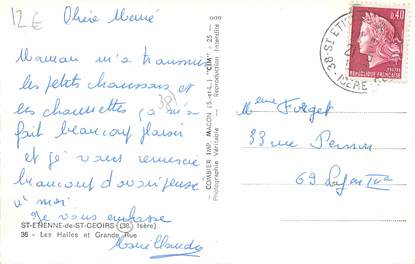 12€
Chère Mémé
Maman m'a transmis
les petits chaussons
et
les chaussettes ça m'a
38
fait beaucoup plaisir
et je vous remercie
beaucoup d'avoir pensé
à moi.
Je vous embrasse
Marie Claude
ST-ETIENNE-de-ST-GEOIRS (38) Isère)
36 - Les Halles et Grande Rue
COMBIER IMP. MACON (S.-&-L.) "CIM" - 25 -
Photographie Véritable - Reproduction Interdite
38-ST ETIE
ISERE
0,40
REPUBLIQUE FRANCAISE
Mme Forget
33 rue
69 Lyon IVe